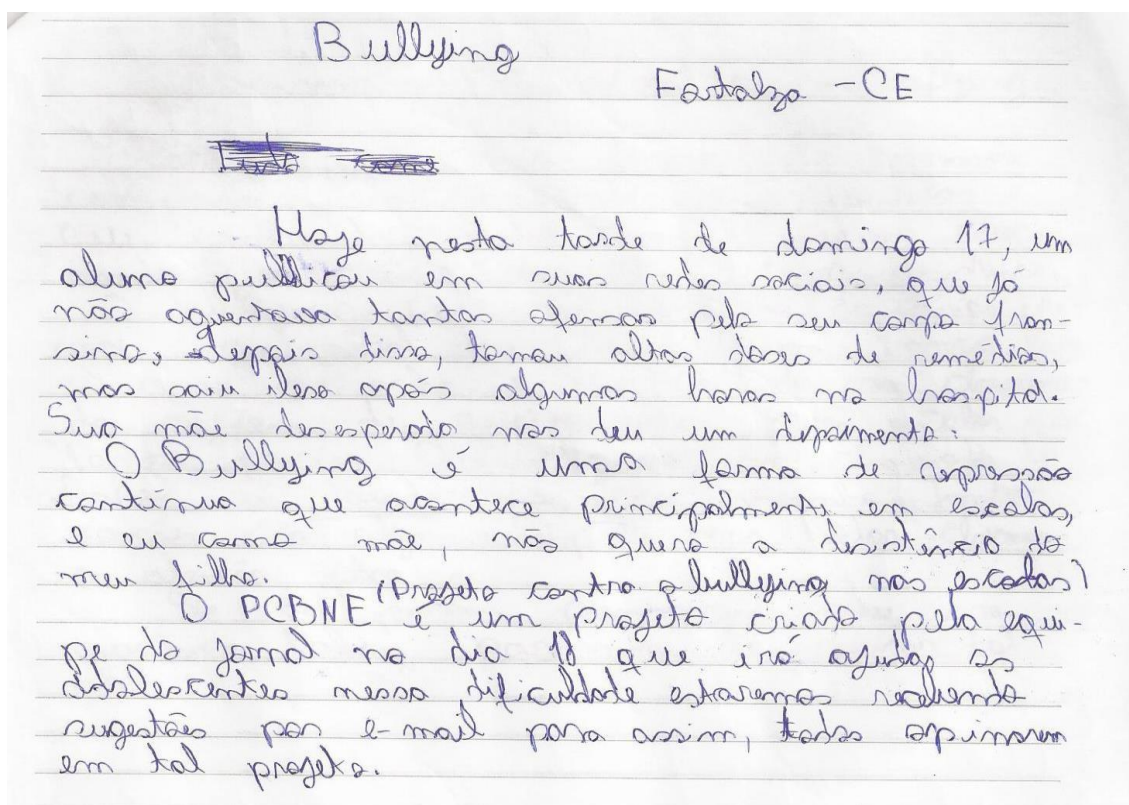 Bullying
Fortalza - CE
Hoje nesta tarde de domingo 17, um
aluno publicou em suas redes sociais, que já
não aguentava tantas ofensas pelo seu corpo fran-
sino, depois disso, tomou altas doses de remédios,
mas saiu ileso após algumas horas no hospital.
Sua mãe desesperada nos deu um depoimento:
O Bullying é uma forma de repressão
contínua que acontece principalmente em escolas,
e eu como mãe, não quero a desistência do
meu filho. (Projeto contra o bullying nas escolas)
O PCBNE é um projeto criado pela equi-
pe do jornal no dia 18 que irá ajudar os
adolescentes nessa dificuldade estaremos recebendo
sugestões por e-mail para assim, todos opinarem
em tal projeto.